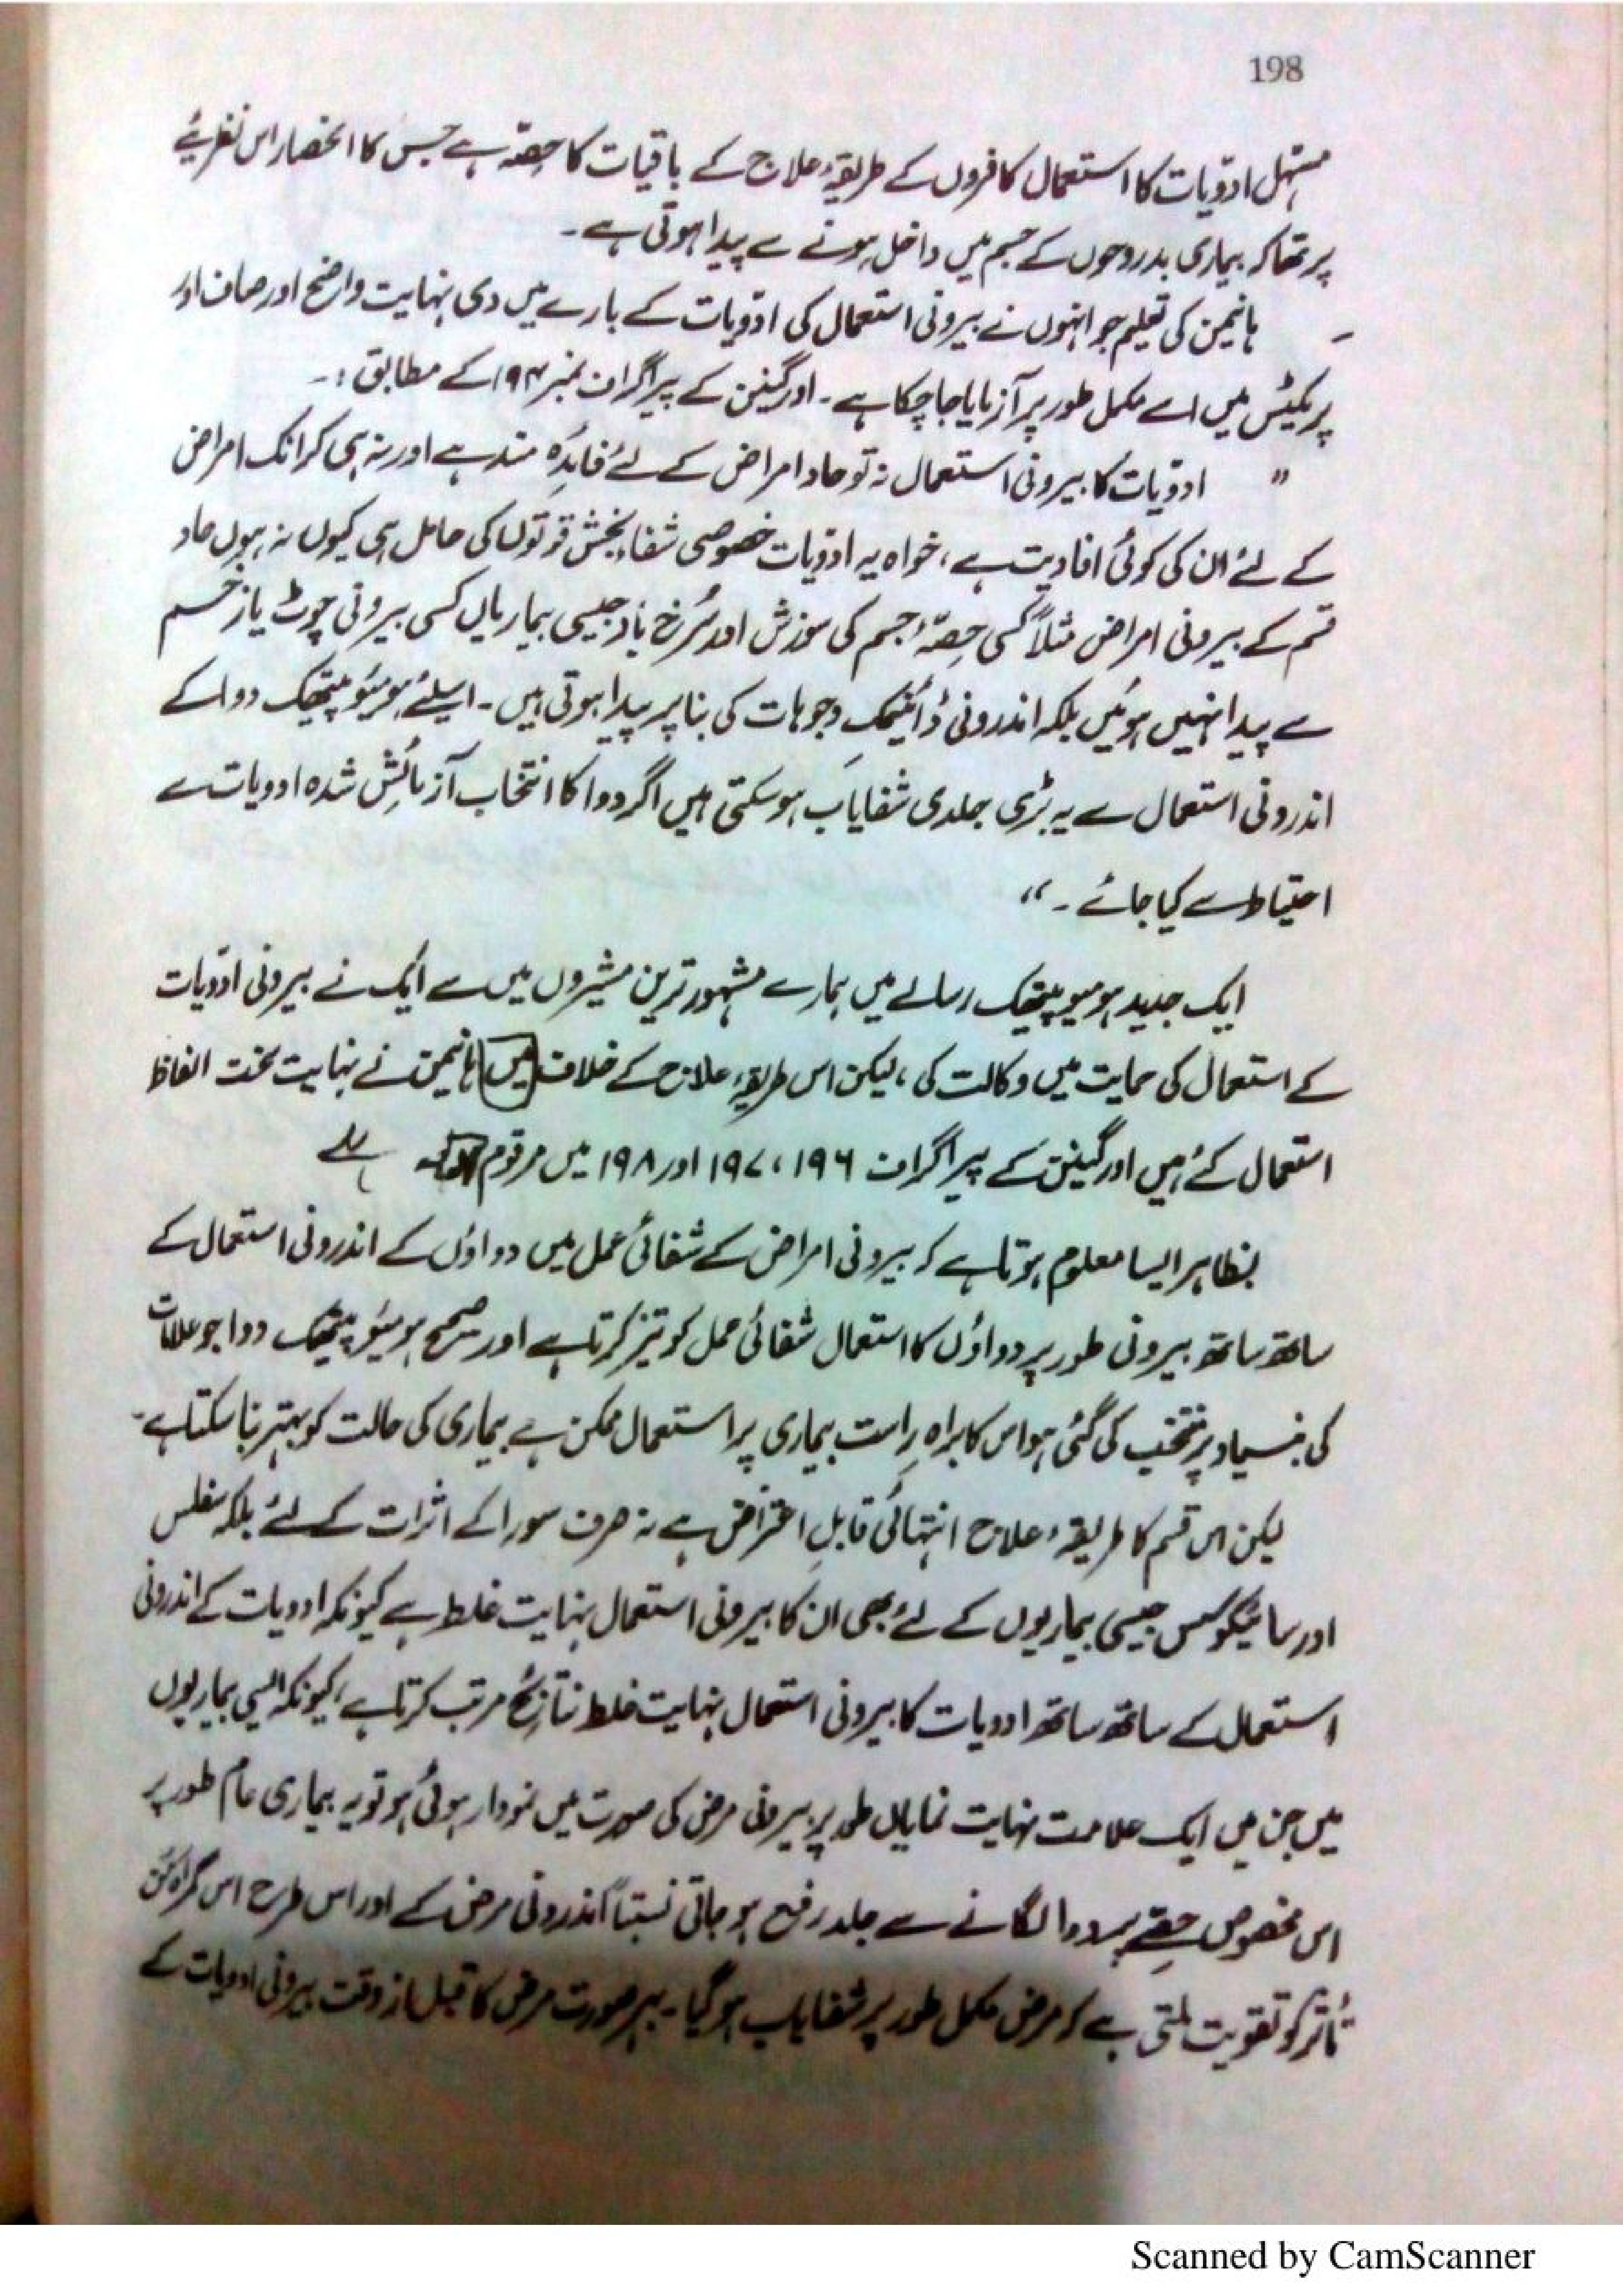 198
مسہل ادویات کا استعمال کافروں کے طریقۂ علاج کے باقیات کا حِصّہ ہے جس کا انحصار اس نظریئے
پر تھا کہ بیماری بد روحوں کے جسم میں داخل ہونے سے پیدا ہوتی ہے۔
ہانیمن کی تعلیم جو انہوں نے بیرونی استعمال کی ادویات کے بارے میں دی نہایت واضح اور صاف اور
پریکٹس میں اسے مکمل طور پر آزمایا جا چکا ہے۔ اورگینن کے پیراگراف نمبر ۱۹۴ کے مطابق :۔
" ادویات کا بیرونی استعمال نہ تو حاد امراض کے لئے فائدہ مند ہے اور نہ ہی کرانک امراض
کے لئے ان کی کوئی افادیت ہے، خواہ یہ ادویات خصوصی شفاء بخش قوتوں کی حامل ہی کیوں نہ ہوں حاد
قسم کے بیرونی امراض مثلاً کسی حِصّۂ جسم کی سوزش اور سُرخ باد جیسی بیماریاں کسی بیرونی چوٹ یا زخم
سے پیدا نہیں ہوئیں بلکہ اندرونی ڈائنیمک وجوہات کی بنا پر پیدا ہوتی ہیں۔ اسلیئے ہومیئوپیتھک دوا کے
اندرونی استعمال سے یہ بڑی جلدی شفایاب ہو سکتی ہیں اگر دوا کا انتخاب آزمائش شدہ ادویات سے
احتیاط سے کیا جائے۔ "
ایک جدید ہومیوپیتھک رسالے میں ہمارے مشہور ترین مشیروں میں سے ایک نے بیرونی ادویات
کے استعمال کی حمایت میں وکالت کی، لیکن اس طریقۂ علاج کے خلاف میں ہانیمن نے نہایت سخت الفاظ
استعمال کئے ہیں اورگینن کے پیراگراف ۱۹۶، ۱۹۷ اور ۱۹۸ میں مرقوم
بظاہر ایسا معلوم ہوتا ہے کہ بیرونی امراض کے شفائی عمل میں دواؤں کے اندرونی استعمال کے
ساتھ ساتھ بیرونی طور پر دواؤں کا استعمال شفائی عمل کو تیز کرتا ہے اور صحیح ہومیئوپیتھک دوا جو علامات
کی بنیاد پر منتخب کی گئی ہو اس کا براہ راست بیماری پر استعمال ممکن ہے بیماری کی حالت کو بہتر بنا سکتا ہے۔
لیکن اس قسم کا طریقۂ علاج انتہائی قابلِ اعتراض ہے نہ صرف سورا کے اثرات کے لئے بلکہ سفلس
اور سائیکوسس جیسی بیماریوں کے لئے بھی ان کا بیرونی استعمال نہایت غلط ہے کیونکہ ادویات کے اندرونی
استعمال کے ساتھ ساتھ ادویات کا بیرونی استعمال نہایت غلط نتائج مرتب کرتا ہے، کیونکہ ایسی بیماریوں
میں جن میں ایک علامت نہایت نمایاں طور پر بیرونی مرض کی صورت میں نمودار ہوئی ہو تو یہ بیماری عام طور پر
اس مخصوص حِصّے پر دوا لگانے سے جلد رفع ہو جاتی نسبتاً اندرونی مرض کے اور اس طرح اس گمراہ کن
تاثر کو تقویت ملتی ہے کہ مرض مکمل طور پر شفایاب ہو گیا۔ بہر صورت مرض کا قبل از وقت بیرونی ادویات کے
Scanned by CamScanner